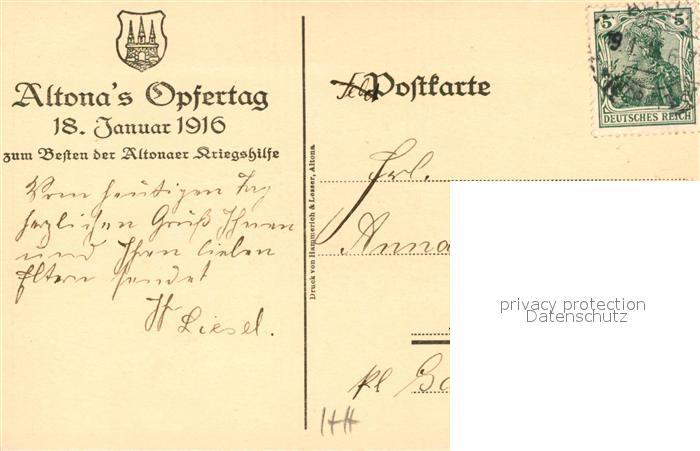 Altona's Opfertag
18. Januar 1916
zum Besten der Altonaer Kriegshilfe
Vom heutigen Tag
herzlichen Gruß Ihnen
und Ihren lieben
Eltern sendet
Liesel.
Druck von Hammerich & Lesser, Altona.
Postkarte
5 5
DEUTSCHES REICH
Frl.
Anna
kl
HH
privacy protection
Datenschutz